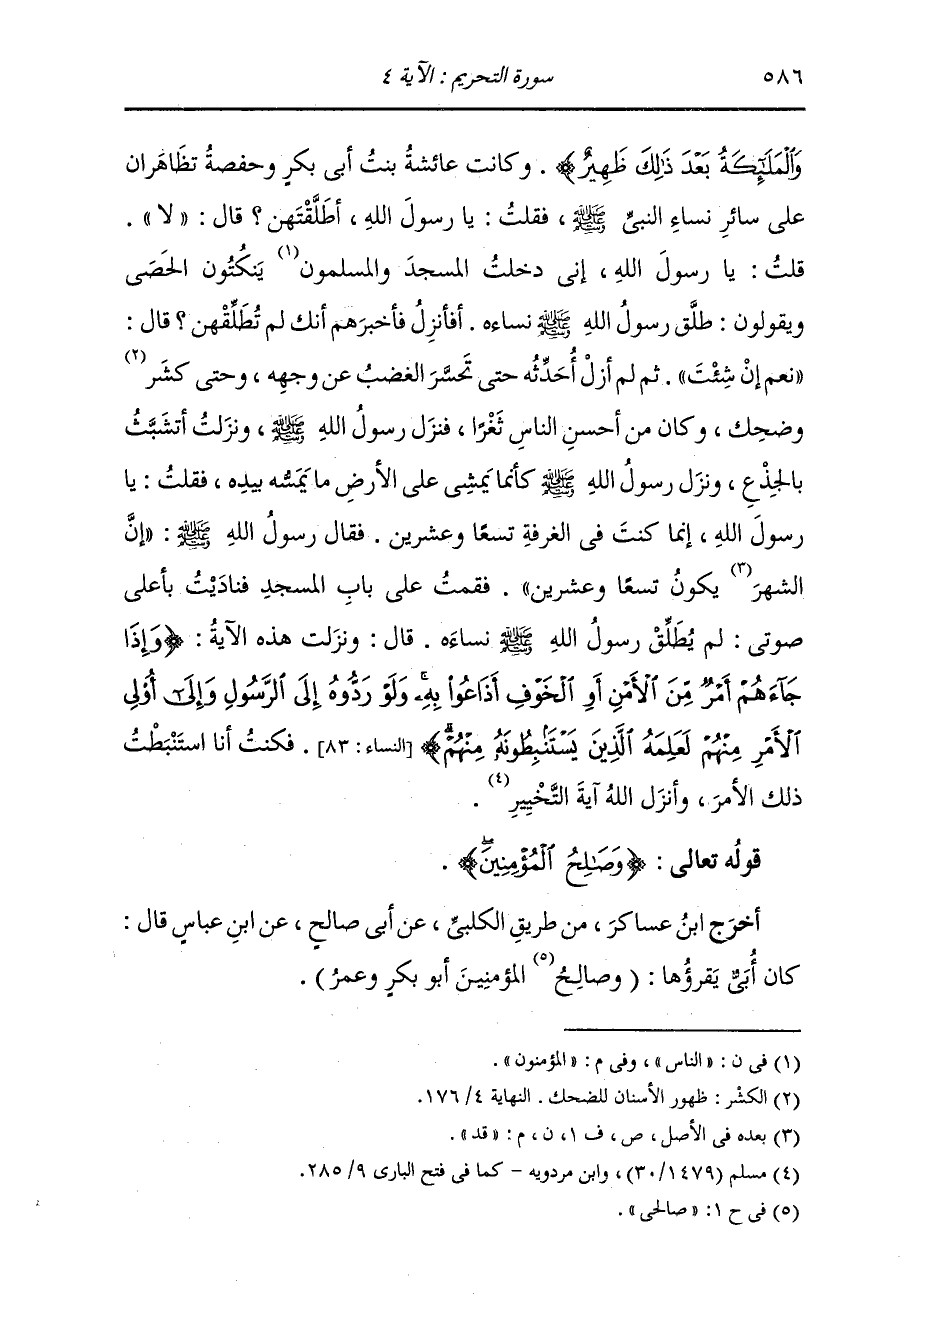 ٥٨٦ سورة التحريم : الآية ٤
وَٱلْمَلَٰٓئِكَةُ بَعْدَ ذَٰلِكَ ظَهِيرٌ﴾ . وكانت عائشةُ بنتُ أبى بكرٍ وحفصةُ تظَاهَران
على سائرِ نساءِ النبىِّ ﷺ ، فقلتُ : يا رسولَ اللهِ ، أطَلَّقْتَهن ؟ قال : « لا » .
قلتُ : يا رسولَ اللهِ ، إنى دخلتُ المسجدَ والمسلمون(١) يَنكُتُون الحَصَى
ويقولون : طلَّق رسولُ اللهِ ﷺ نساءه . أفأنزِلُ فأخبرَهم أنك لم تُطَلِّقْهن ؟ قال :
«نعم إنْ شِئْتَ» . ثم لم أزلْ أُحَدِّثُه حتى تَحسَّرَ الغضبُ عن وجهِه ، وحتى كشَر(٢)
وضحِك ، وكان من أحسنِ الناسِ ثَغْرًا ، فنزَل رسولُ اللهِ ﷺ ، ونزَلتُ أتشَبَّثُ
بالجِذْعِ ، ونزَل رسولُ اللهِ ﷺ كأنما يَمشِى على الأرضِ ما يَمَسُّه بيدِه ، فقلتُ : يا
رسولَ اللهِ ، إنما كنتَ فى الغرفةِ تسعًا وعشرين . فقال رسولُ اللهِ ﷺ : «إنَّ
الشهرَ(٣) يكونُ تسعًا وعشرين» . فقمتُ على بابِ المسجدِ فنادَيْتُ بأعلى
صوتى : لم يُطَلِّقْ رسولُ اللهِ ﷺ نساءَه . قال : ونزَلت هذه الآيةُ : ﴿وَإِذَا
جَآءَهُمْ أَمْرٌ مِّنَ ٱلْأَمْنِ أَوِ ٱلْخَوْفِ أَذَاعُوا۟ بِهِۦ وَلَوْ رَدُّوهُ إِلَى ٱلرَّسُولِ وَإِلَىٰٓ أُو۟لِى
ٱلْأَمْرِ مِنْهُمْ لَعَلِمَهُ ٱلَّذِينَ يَسْتَنۢبِطُونَهُۥ مِنْهُمْ﴾ [النساء : ٨٣] . فكنتُ أنا استَنْبَطْتُ
ذلك الأمرَ ، وأنزَل اللهُ آيةَ التَّخْيِيرِ(٤) .
قولُه تعالى : ﴿وَصَٰلِحُ ٱلْمُؤْمِنِينَ﴾ .
أخرَج ابنُ عساكرَ ، من طريقِ الكلبىِّ ، عن أبى صالحٍ ، عن ابنِ عباسٍ قال :
كان أُبَىٌّ يَقرؤُها : ( وصالِحُ(٥) المؤمنِينَ أبو بكرٍ وعمرُ ) .
(١) فى ن : «الناس» ، وفى م : «المؤمنون» .
(٢) الكشْر : ظهور الأسنان للضحك . النهاية ٤/ ١٧٦.
(٣) بعده فى الأصل ، ص ، ف ١، ن ، م : «قد» .
(٤) مسلم (٣٠/١٤٧٩) ، وابن مردويه – كما فى فتح البارى ٩/ ٢٨٥.
(٥) فى ح ١: «صالحى» .